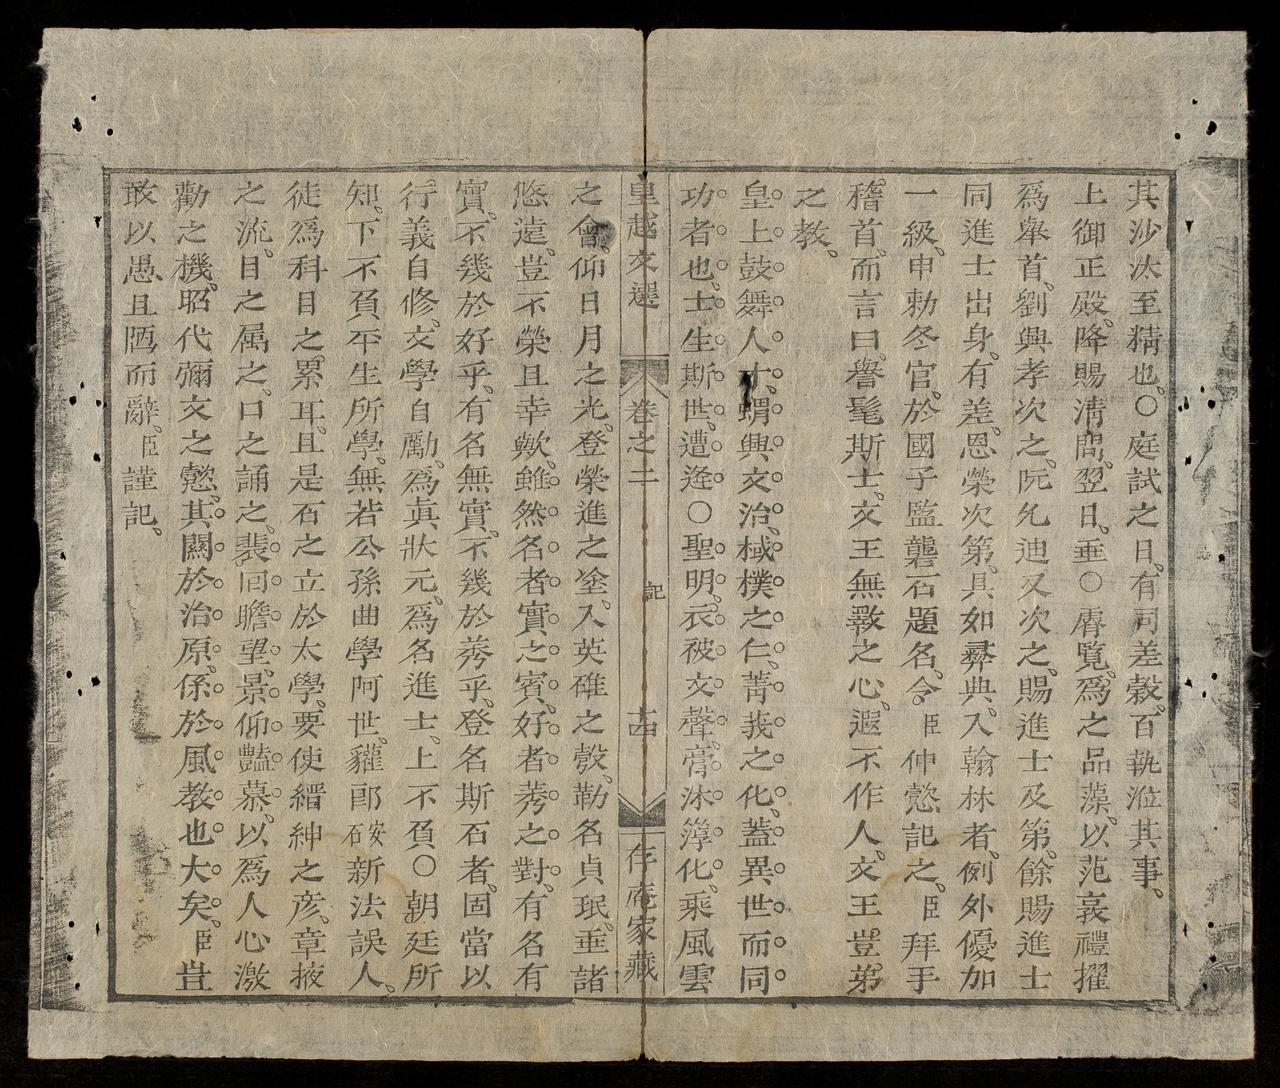 其沙汰至精也。○庭試之日、有司差穀、百執涖其事。
上御正殿、降賜淸問。翌日、垂○睿覧、爲之品藻、以范裒禮擢
爲舉首、劉興孝次之、阮允迪又次之、賜進士及第、餘賜進士
同進士出身、有差。恩榮次第、具如彛典、入翰林者、例外優加
一級、申勅冬官、於國子監礱石題名、令臣仲懿記之、臣拜手
稽首、而言曰、譽髦斯士、文王無斁之心、遐不作人、文王豈弟
之教。
皇上鼓舞人才、蝟興文治、棫樸之仁、菁莪之化、蓋異世而同
功者也。士生斯世、遭逢○聖明、衣被文聲、膏沐淳化、乘風雲
皇越文選
卷之二
記
十四
存庵家藏
之會、仰日月之光、登榮進之塗、入英雄之彀、勒名貞珉、垂諸
悠遠、豈不榮且幸歟。雖然名者實之賓、好者莠之對、有名有
實、不幾於好乎。有名無實、不幾於莠乎。登名斯石者、固當以
行義自修、文學自勵、爲眞狀元、爲名進士、上不負○朝廷所
知、下不負平生所學、無若公孫曲學阿世、貛郎安石新法誤人、
徒爲科目之累耳。且是石之立於太學、要使縉紳之彦、章掖
之流、目之属之、口之誦之、裴囘瞻望、景仰豔慕、以爲人心激
勸之機、昭代彌文之懿、其關於治原、係於風教也大矣。臣豈
敢以愚且陋而辭。臣謹記。